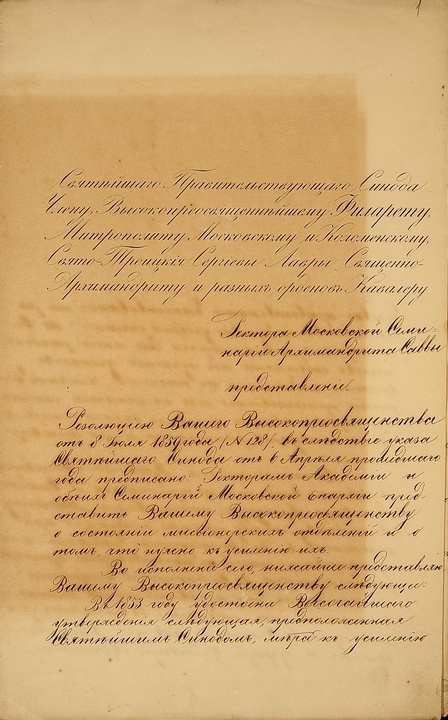 1
Святѣйшаго Правительствующаго Синода
Члену, Высокопреосвященнѣйшему Филарету,
Митрополиту Московскому и Коломенскому,
Свято-Троицкія Сергіевы Лавры Священно-
Архимандриту и разныхъ орденовъ Кавалеру
Ректора Московской Семи-
наріи Архимандрита Саввы
представленіе.
Резолюціею Вашего Высокопреосвященства
отъ 8 Іюля 1859 года (№ 128) въ слѣдствіе указа
Святѣйшаго Синода отъ 6 Апрѣля прошедшаго
года предписано: Ректорамъ Академіи и
обѣихъ Семинарій Московской епархіи пред-
ставить Вашему Высокопреосвященству
о состояніи миссіонерскихъ отдѣленій и о
томъ, что нужно къ усиленію ихъ.
Во исполненіе сего, нижайше представляю
Вашему Высокопреосвященству слѣдующее:
Въ 1853 году удостоена Высочайшаго
утвержденія слѣдующая, предположенная
Святѣйшимъ Синодомъ, мѣра къ усиленію